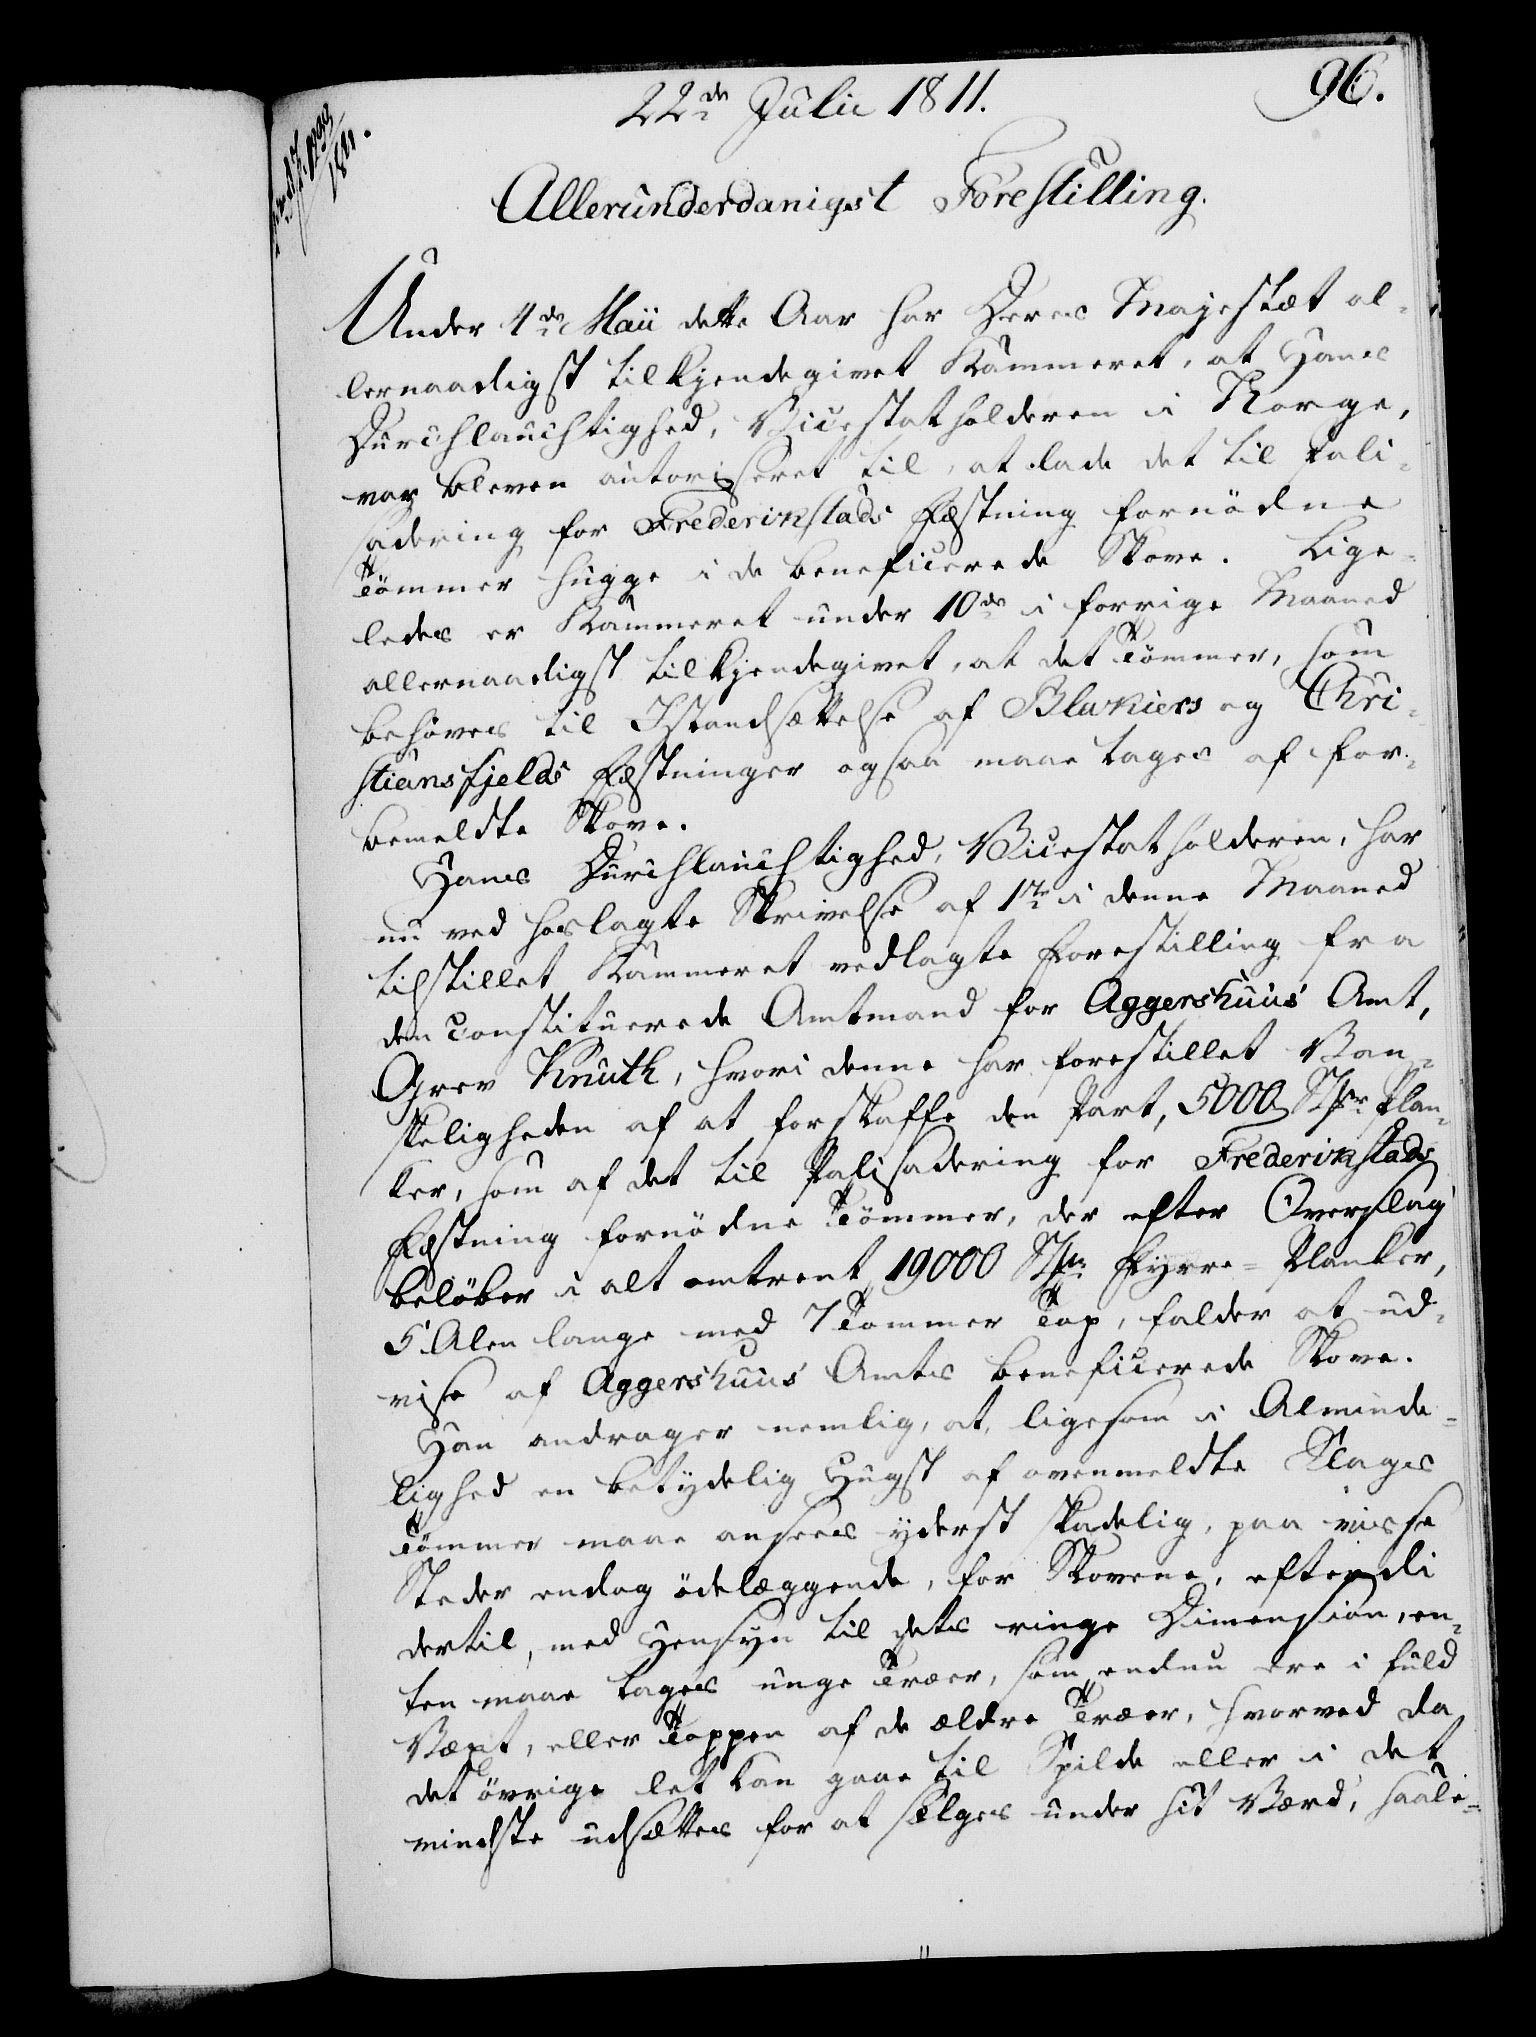 96.
22de Julii 1811.
Allerunderdanigst Forestilling.
Under 4de Maii dette Aar har Deres Majestæt al-
lernaadigst tilkjendegivet Kammeret, at Hans
Durchlauchtighed, Vicestatholderen i Norge,
var bleven autoriseret til, at lade det til Pali-
sadering for Frederikstads Fæstning fornödne
Tömmer hugge i de beneficerede Skove. Lige-
ledes er Kammeret under 10de i forrige Maaned
allernaadigst tilkjendegivet, at det Tömmer, som
behöves til Istandsættelse af Blakiers og Chri-
stiansfjelds Fæstninger ogsaa maae tages af for-
bemeldte Skove.
Hans Durchlauchtighed, Vicestatholderen, har
nu ved hoslagte Skrivelse af 1te i denne Maaned
tilstillet Kammeret vedlagte Forestilling fra
den Constituerede Amtmand for Aggershuus Amt,
Grev Knuth, hvori denne har forestillet Van-
skeligheden af at forskaffe den Part, 5000 Stkr Plan-
ker, som af det til Palisadering for Frederikstads
Fæstning fornödne Tömmer, der efter Overslag
belöber i alt omtrent 19000 Stkr Fyrre-Planker,
5 Alen lange med 7 Tommer Top, falder at ud-
vise af Aggershuus Amts beneficerede Skove.
Han andrager nemlig, at, ligesom i Alminde-
lighed en betydelig Hugst af ovenmeldte Slags
Tömmer maae ansees yderst skadelig, paa visse
Steder endog ödelæggende, for Skovene, efterdi
dertil, med Hensyn til dets ringe Dimension, en-
ten maae tages unge Træer, som endnu ere i fuld
Væxt, eller Toppen af de ældre Træer, hvorved da
det övrige let kan gaae til Spilde eller i det
mindste udsættes for at sælges under sit Værd, saale-